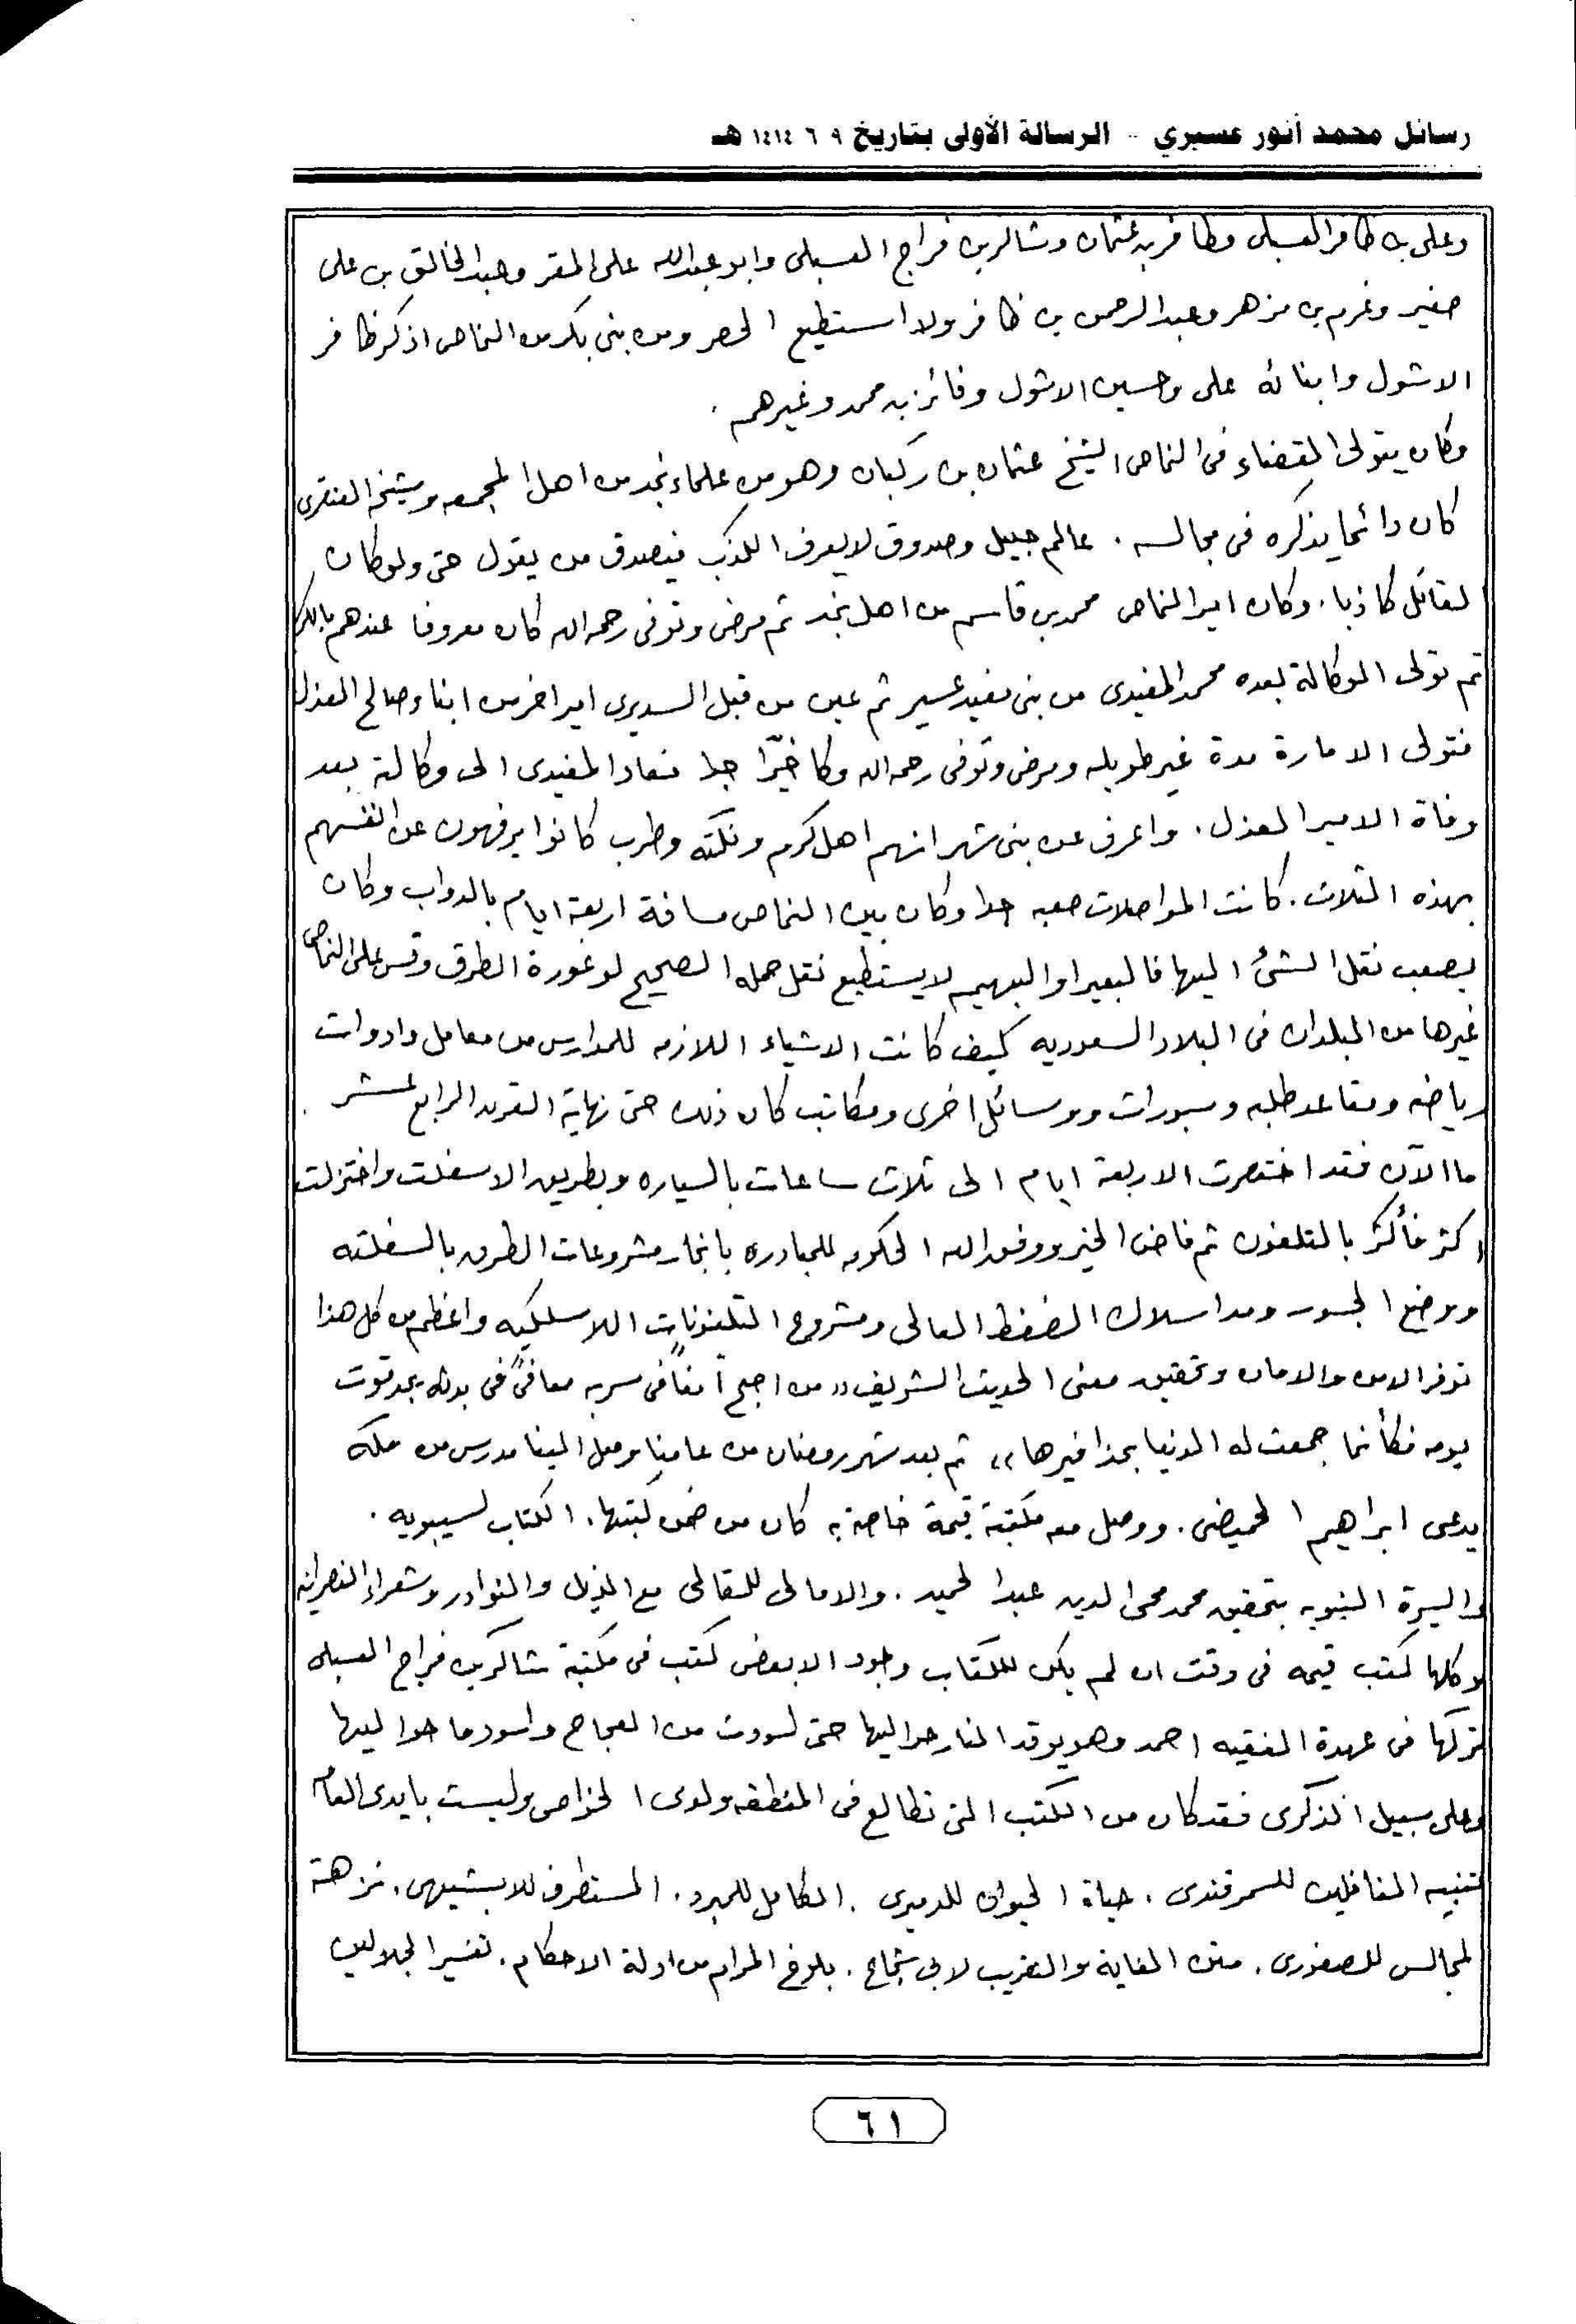 رسائل محمد أنور عسيري - الرسالة الأولى بتاريخ ٩ ٦ ١٤١٤ هـ
وعلى بن ظافر العسبلى وظافر بن عثمان وشاكر بن فراج العسبلى وابو عبدالله على المقر وعبدالخالق بن على
صغير وغرم بن مزهر وعبد الرحمن بن ظافر ولا استطيع الحصر ومن بنى بكر من النماص اذكر ظافر
الاشول وابنائه على وحسين الاشول وفائز بن محمد وغيرهم .
وكان يتولى القضاء فى النماص الشيخ عثمان بن ركبان وهو من علماء نجد من اهل المجمعه وشيخه العنقرى
كان دائما يذكره فى مجالسه . عالم جليل وصدوق لايعرف الكذب فيصدق من يقول حتى ولو كان
لقائل كاذبا . وكان امير النماص محمد بن قاسم من اهل نجد ثم مرض وتوفى رحمه الله كان معروفا عندهم بالكر
ثم تولى الوكالة بعده محمد المفيدى من بنى مفيد عسير ثم عين من قبل السديرى امير اخر من ابناء صالح العذل
فتولى الامارة مدة غير طويله ومرض وتوفى رحمه الله وكا خيّرا جدا فعاد المفيدى الى وكالته بعد
وفاة الامير العذل . واعرف عن بنى شهر انهم اهل كرم ونكته وطرب كانوا يرفهون عن انفسهم
بهذه الثلاث . كانت المواصلات صعبه جدا وكان بين النماص مسافة اربعة ايام بالدواب وكان
يصعب نقل الشئ اليها فالبعير او البهيمه لا يستطيع نقل حمله الصحيح لوعورة الطرق وقس على النماص
غيرها من البلدان فى البلاد السعوديه كيف كانت الاشياء اللازمه للمدارس من معامل وادوات
رياضه ومقاعد طلبه وسبورات ووسائل اخرى ومكاتب كان ذلك حتى نهاية القرن الرابع عشر .
ما الآن فقد اختصرت الاربعة ايام الى ثلاث ساعات بالسياره وبطريق الاسفلت واختزلت
اكثر فأكثر بالتلفون ثم فاض الخير ووفق الله الحكومه للمبادره بانجاز مشروعات الطرق بالسفلته
ووضع الجسور ومد اسلاك الضغط العالى ومشروع التلفونات اللاسلكيه واعظم من كل هذا
توفر الامن والامان وتحقيق معنى الحديث الشريف (( من اصبح آمنًا فى سربه معافىً فى بدنه يجد قوت
يومه فكأنما جمعت له الدنيا بحذافيرها )) ثم بعد شهر رمضان من عامنا وصل الينا مدرس من مكه
يدعى ابراهيم الحميضى . ووصل معه مكتبة قيمة خاصة به كان من ضمن كتبها . الكتاب لسيبويه .
والسيرة النبويه بتحقيق محمد محى الدين عبد الحميد . والامالى للقالى مع الذيل والنوادر وشعراء النصرانيه
وكلها كتب قيمه فى وقت ان لم يكن للكتاب وجود الا بعض كتب فى مكتبة شاكر بن فراج العسبلى
تركها فى عهدة الفقيه احمد وهو يوقد النار حواليها حتى اسودت من العجاج واسود ما حواليها
وعلى سبيل الذكرى فقد كان من الكتب التى تطالع فى المنطقه ولدى الخواص وليست بايدى العام
تنبيه الغافلين للسمرقندى . حياة الحيوان للدميرى . الكامل للمبرد . المستطرف للابشيهى . نزهة
لمجالس للصفورى . متن الغاية والتقريب لابى شجاع . بلوغ المرام من ادلة الاحكام . تفسير الجلالين
٦١